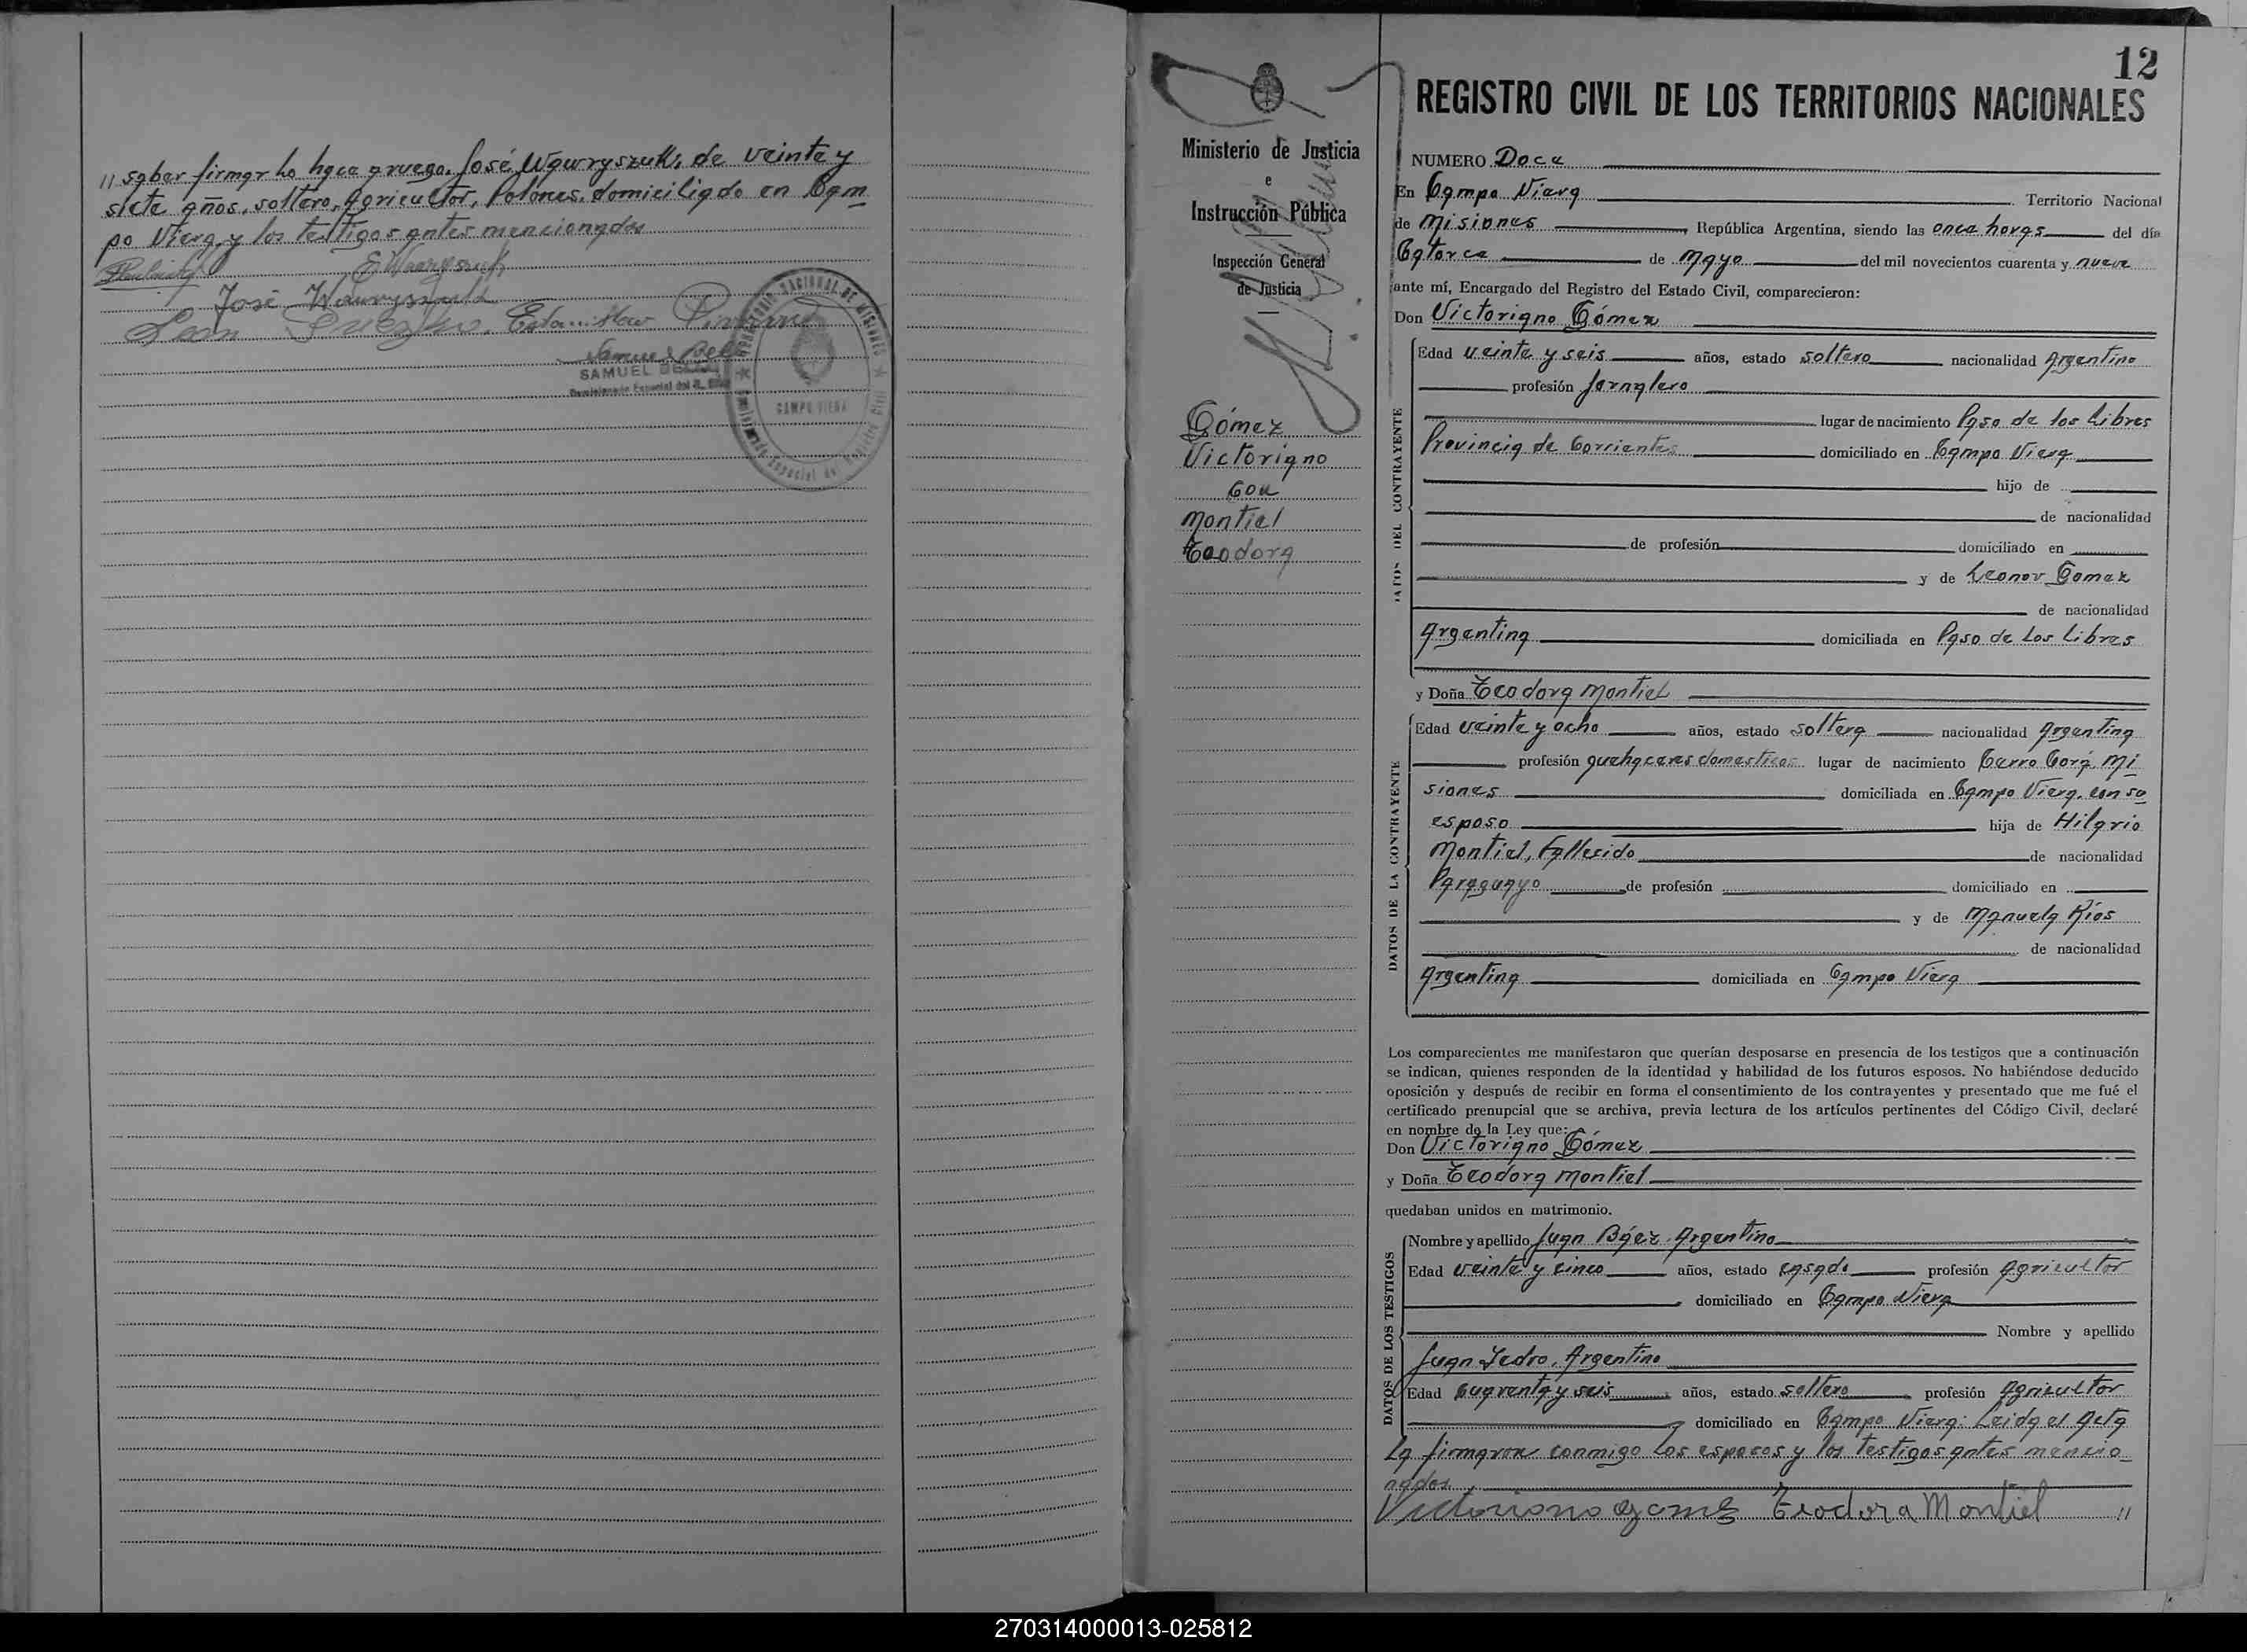 // saber firmar lo hace a ruego. José Wawryszuk, de veinte y
siete años, soltero, Agricultor, Polones, domiciliado en Cam
po Viera, y los testigos antes mencionados
José Wawryszuk
Estanislao
SAMUEL
CAMPO VIERA
12
REGISTRO CIVIL DE LOS TERRITORIOS NACIONALES
Ministerio de Justicia
e
Instrucción Pública
Inspección General
de Justicia
Gómez
Victoriano
con
Montiel
Teodora
NUMERO Doce
En Campo Viera Territorio Nacional
de Misiones, República Argentina, siendo las once horas del día
Catorce de Mayo del mil novecientos cuarenta y nueve
ante mí, Encargado del Registro del Estado Civil, comparecieron:
Don Victoriano Gómez
DATOS DEL CONTRAYENTE
Edad veinte y seis años, estado soltero nacionalidad Argentino
profesión Jornalero
lugar de nacimiento Paso de los Libres
Provincia de Corrientes domiciliado en Campo Viera
hijo de
de nacionalidad
de profesión domiciliado en
y de Leonor Gomez
de nacionalidad
Argentina domiciliada en Paso de Los Libres
y Doña Teodora Montiel
DATOS DE LA CONTRAYENTE
Edad veinte y ocho años, estado soltera nacionalidad Argentina
profesión quehaceres domesticos lugar de nacimiento Cerro Corá Mi
siones domiciliada en Campo Viera, con su
esposo hija de Hilario
Montiel, Fallecido de nacionalidad
Paraguayo de profesión domiciliado en
y de Manuela Ríos
de nacionalidad
Argentina domiciliada en Campo Viera
Los comparecientes me manifestaron que querían desposarse en presencia de los testigos que a continuación
se indican, quienes responden de la identidad y habilidad de los futuros esposos. No habiéndose deducido
oposición y después de recibir en forma el consentimiento de los contrayentes y presentado que me fué el
certificado prenupcial que se archiva, previa lectura de los artículos pertinentes del Código Civil, declaré
en nombre de la Ley que:
Don Victoriano Gómez
y Doña Teodora Montiel
quedaban unidos en matrimonio.
DATOS DE LOS TESTIGOS
Nombre y apellido Juan Báez, Argentino
Edad veinte y cinco años, estado casado profesión Agricultor
domiciliado en Campo Viera
Nombre y apellido
Juan Argentino
Edad cuarenta y seis años, estado soltero profesión Agricultor
domiciliado en Campo Viera: Leida el acta
la firmaron conmigo los esposos y los testigos antes mencio
nados
Victoriano Gomez Teodora Montiel //
270314000013-025812